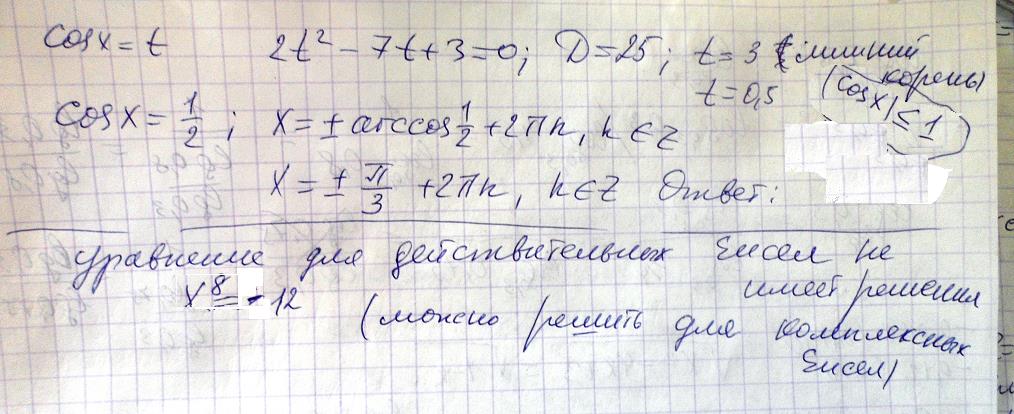 cosx = t 2t² - 7t + 3 = 0; D = 25; t = 3 (лишний корень)
t = 0,5 (|cosx| ≤ 1)
cosx = 1/2; x = ± arccos 1/2 + 2πn, n ∈ Z
x = ± π/3 + 2πn, n ∈ Z Ответ:
уравнение для действительных чисел не
x⁸ = -12 имеет решения
(можно решить для комплексных
чисел)